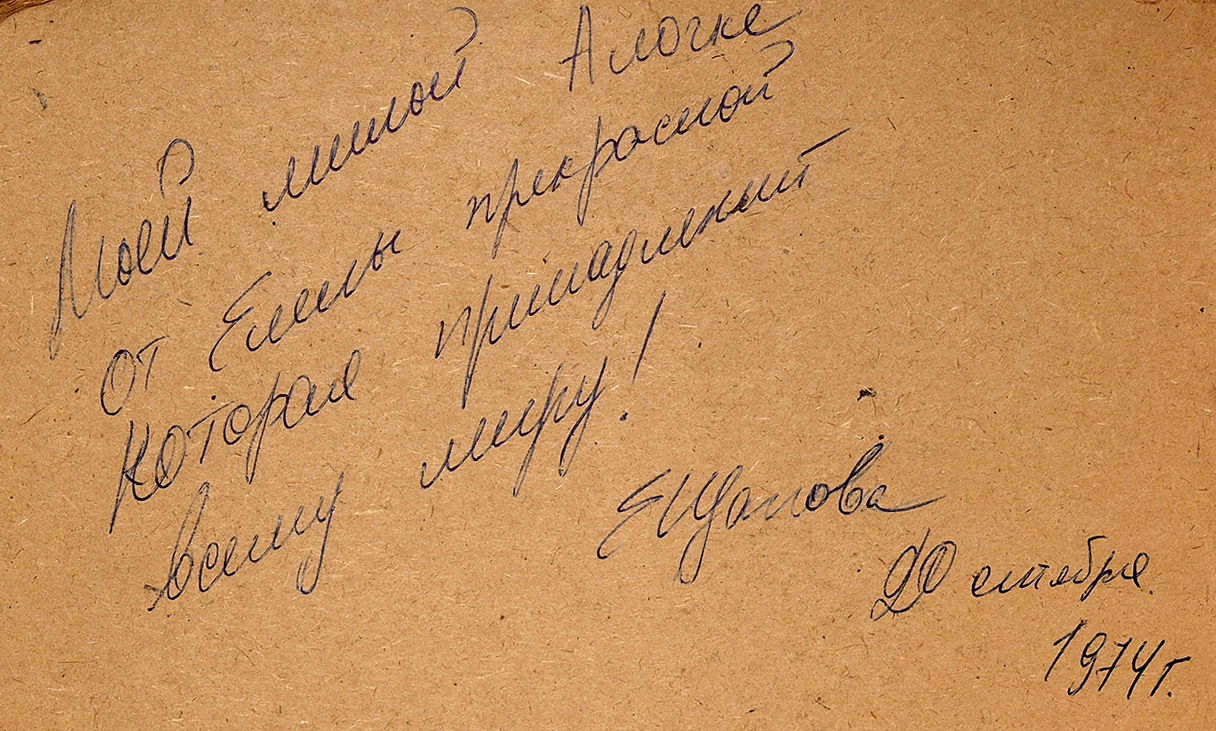 Моей милой Алочке
от Елены прекрасной
которая принадлежит
всему миру!
ЕЩапова
20 октября
1974г.